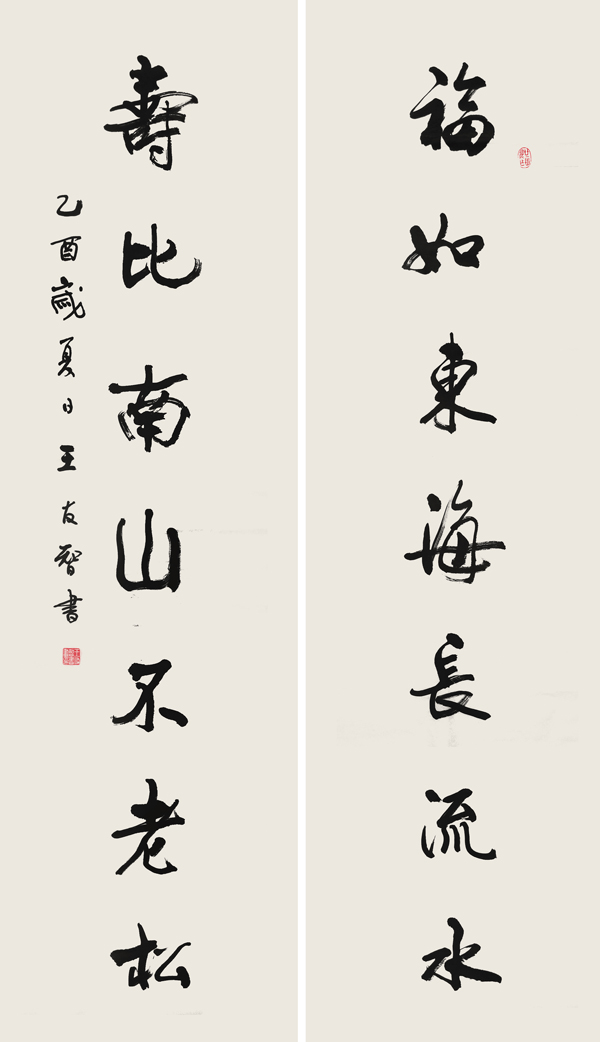 福如東海長流水
壽比南山不老松
乙酉歲夏日王友智書